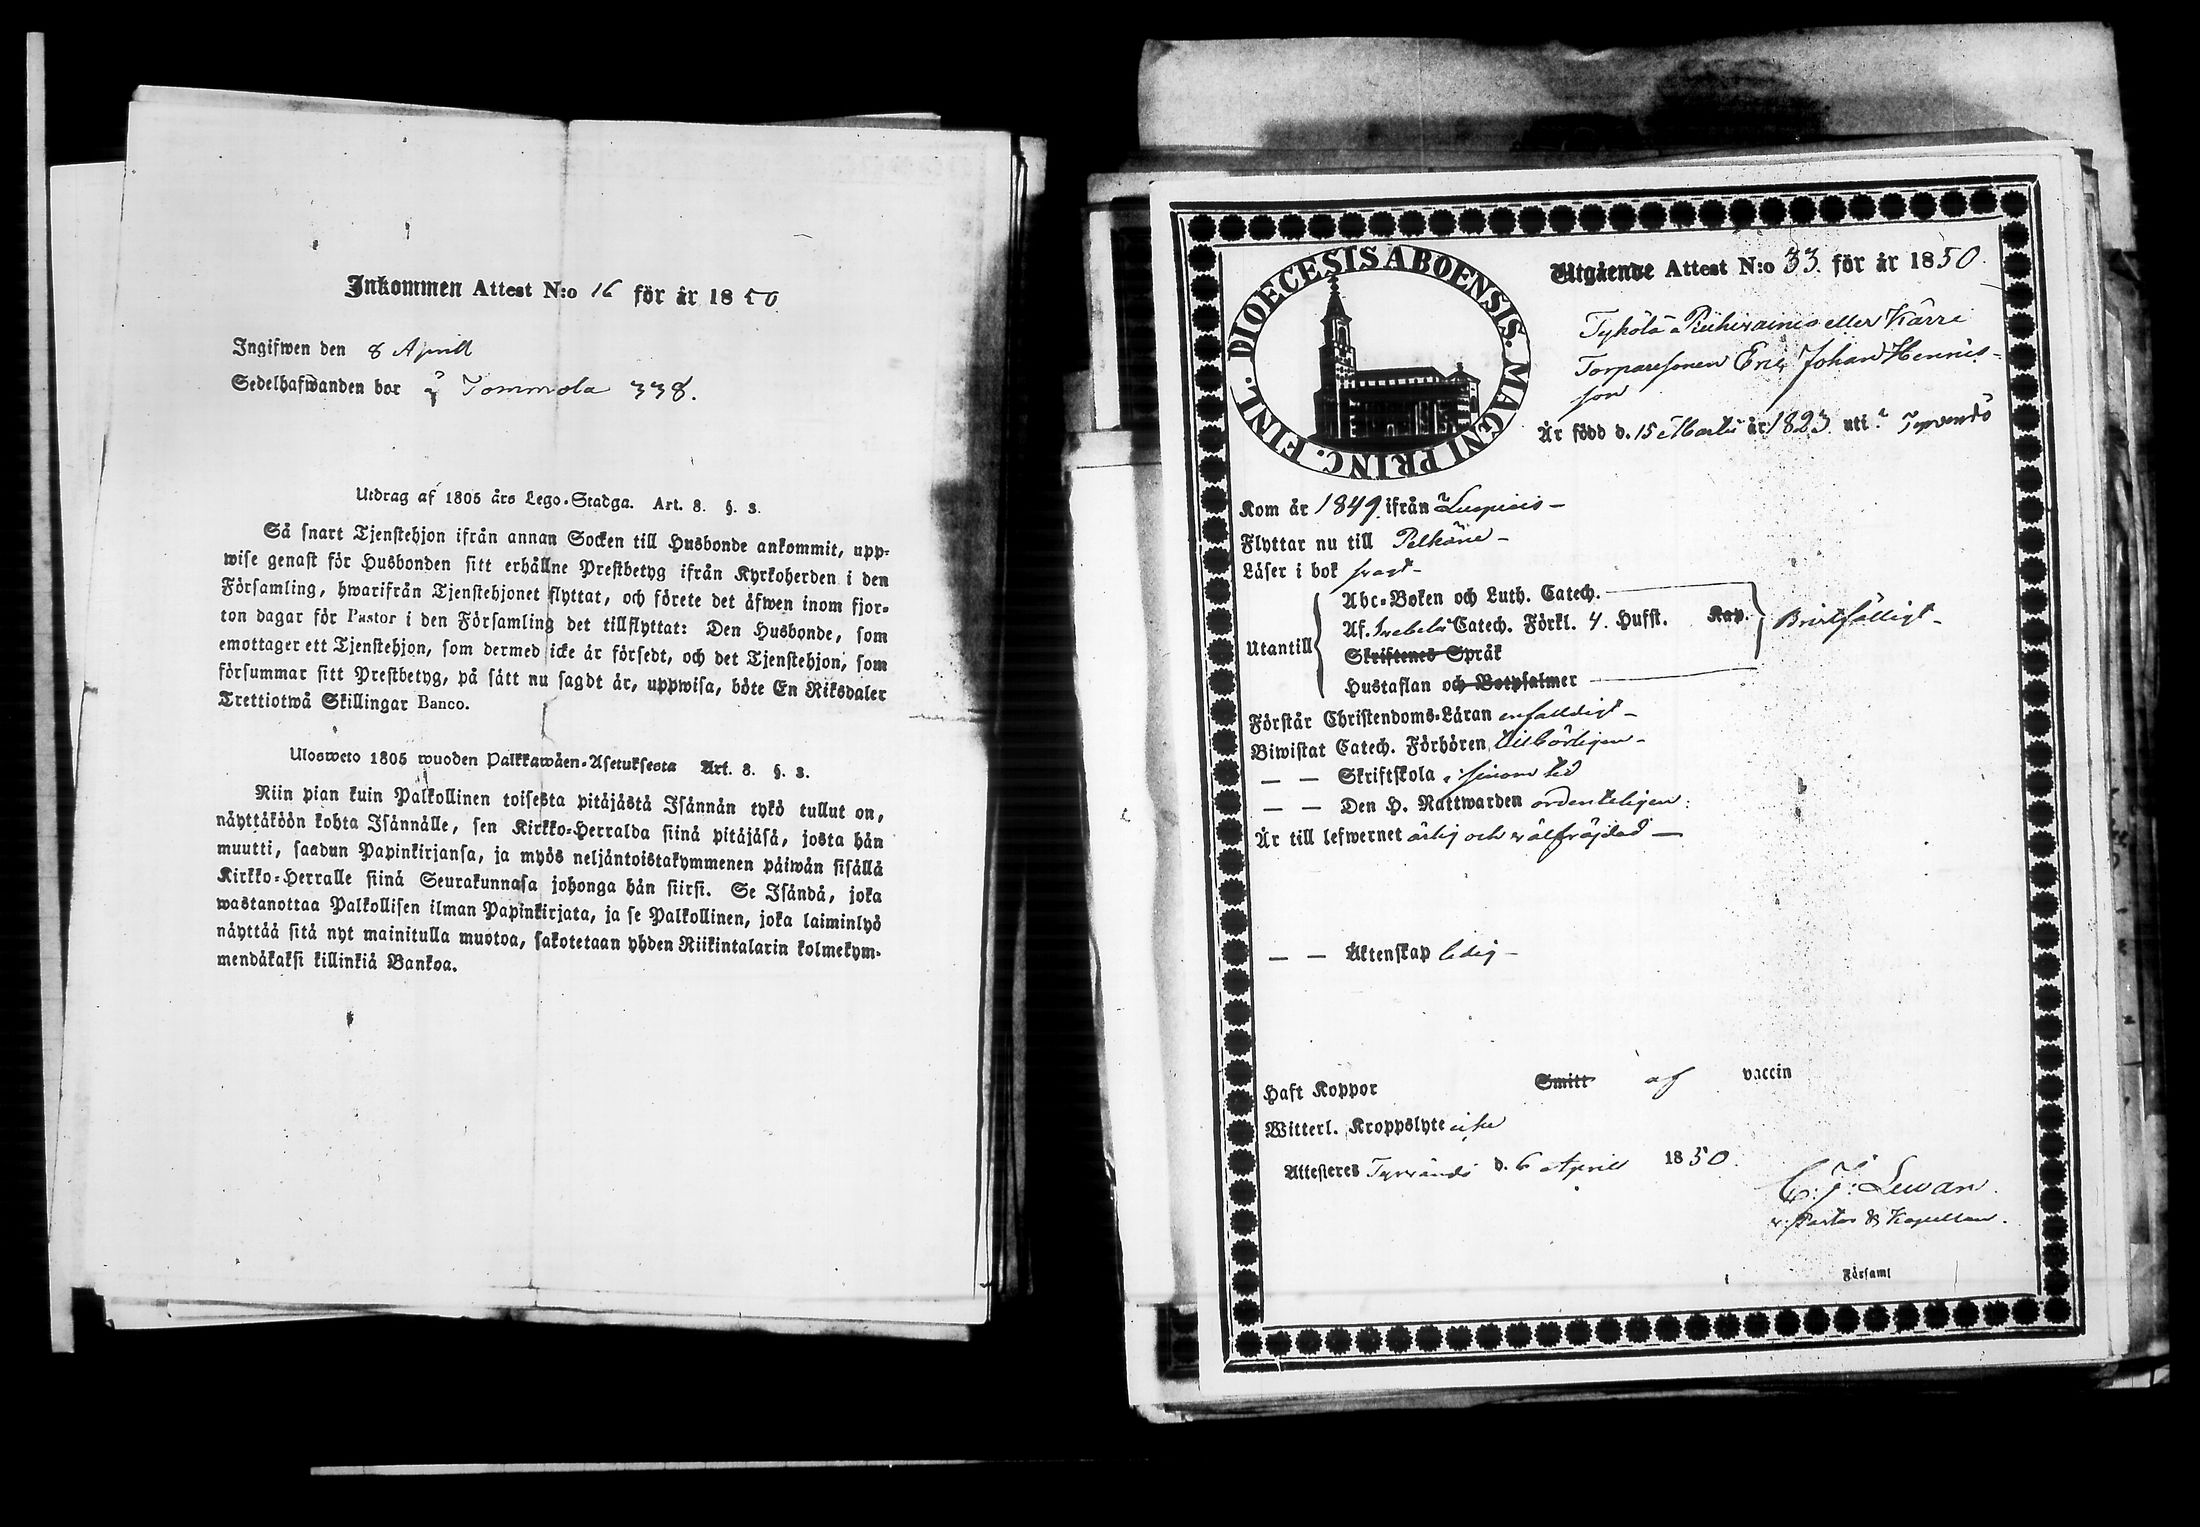 Inkommen Attest N:o 16 för år 1850
Ingifwen den 8 Aprill
Sedelhafwanden bor å Tommola 338.
Utdrag af 1805 års Lego-Stadga. Art. 8. §. 3.
Så snart Tjenstehjon ifrån annan Socken till Husbonde ankommit, upp-
wise genast för Husbonden sitt erhållne Prestbetyg ifrån Kyrkoherden i den
Församling, hwarifrån Tjenstehjonet flyttat, och förete det äfwen inom fjor-
ton dagar för Pastor i den Församling det tillflyttat: Den Husbonde, som
emottager ett Tjenstehjon, som dermed icke är försedt, och det Tjenstehjon, som
försummar sitt Prestbetyg, på sätt nu sagdt är, uppwisa, böte En Riksdaler
Trettiotwå Skillingar Banco.
Ulosweto 1805 wuoden Palkkawäen-Asetuksesta Art. 8. §. 3.
Niin pian kuin Palkollinen toisesta pitäjästä Isännän tykö tullut on,
näyttäköön kohta Isännälle, sen Kirkko-Herralda siinä pitäjäsä, josta hän
muutti, saadun Papinkirjansa, ja myös neljäntoistakymmenen päiwän sisällä
Kirkko-Herralle siinä Seurakunnasa johonga hän siirsi. Se Isändä, joka
wastanottaa Palkollisen ilman Papinkirjata, ja se Palkollinen, joka laiminlyö
näyttää sitä nyt mainitulla muotoa, sakotetaan yhden Riikintalarin kolmekym-
mendäkaksi killinkiä Bankoa.
DIOECESIS ABOENSIS. MAGNI PRINC. FINL.
Utgående Attest N:o 33. för år 1850.
Tykölä eller Karri
Torparesonen Eric Johan Henrics-
son
Är född d. 15 Martii år 1823 uti
Kom år 1849 ifrån
Flyttar nu till Pelkäne -
Läser i bok svagt -
Utantill
Abc-Boken och Luth. Catech.
Af. Svebelii Catech. Förkl. 4. Hufst. Kap.
Bristfälligt -
Skriftenes Språk
Hustaflan och Botpsalmer
Förstår Christendoms-Läran enfalldigt -
Biwistat Catech. Förhören tillbörligen -
— — Skriftskola i sinom tid
— — Den H. Nattwarden ordenteligen:
Är till lefwernet ärlig och välfräjdad —
— — Äktenskap ledig -
Haft Koppor Smitt af vaccin
Witterl. Kroppslyte icke
Attesteres Tyrvändö d. 6 Aprill 1850.
C. J. Lewan.
v. Pastor & Kapellan.
Församl